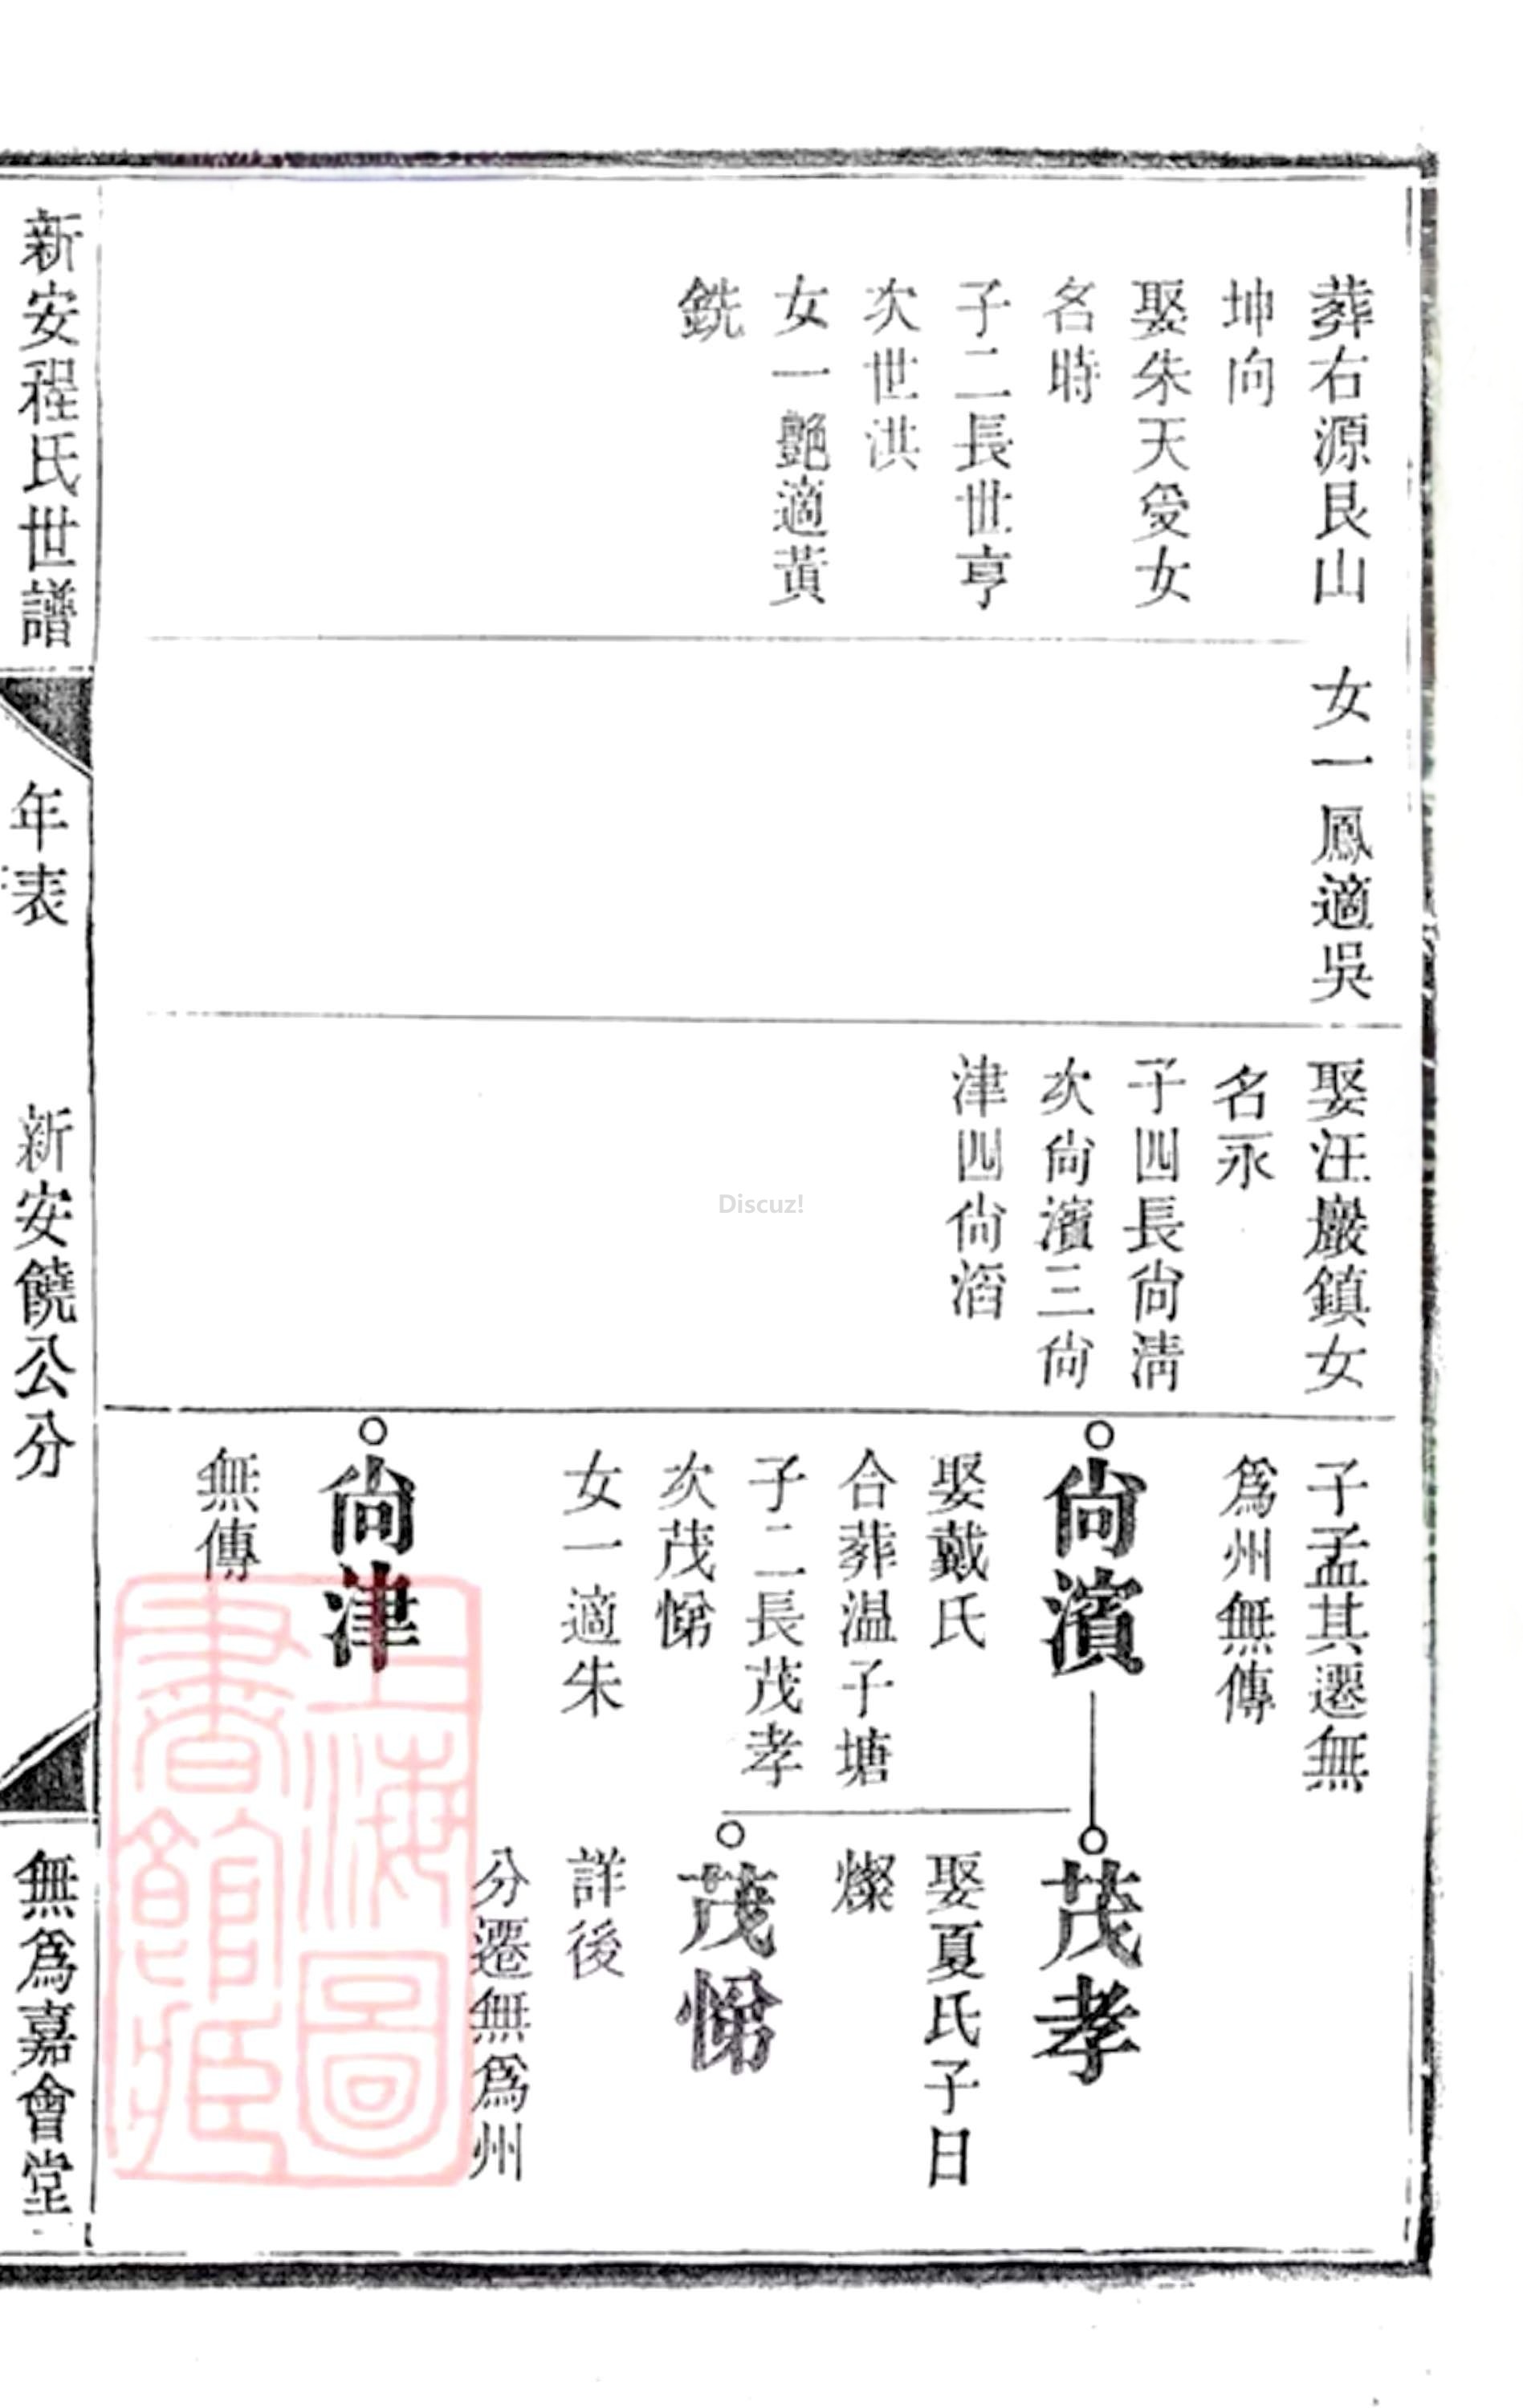 葬右源艮山
坤向
娶朱天爱女
名時
子二長世亨
次世洪
女一艶適黃
銑
女一鳳適吳
娶汪巖鎮女
名永
子四長尙淸
次尙濱三尙
津四尙滔
子孟其遷無
爲州無傳
尙濱
娶戴氏
合葬温子塘
子二長茂孝
次茂悌
女一適朱
尙津
無傳
茂孝
娶夏氏子日
燦
茂悌
詳後
分遷無爲州
新安程氏世譜
年表
新安饒公分
無爲嘉會堂
上海圖書館藏
Discuz!